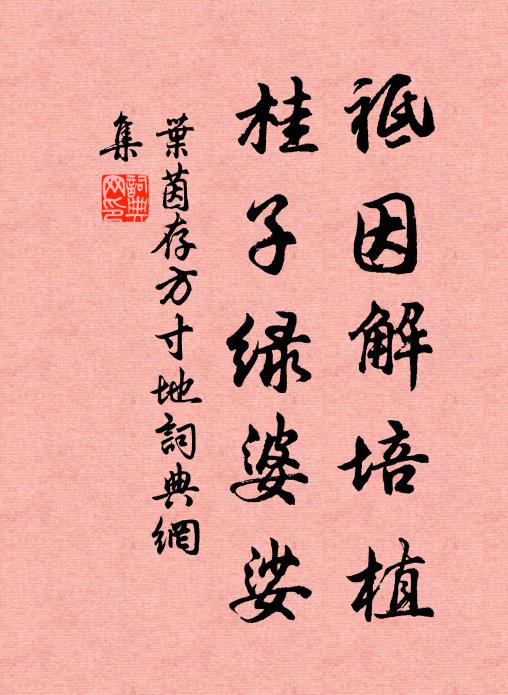 祗因解培植
桂子绿婆娑
葉茵存方寸地詞典網
集
詞典网印